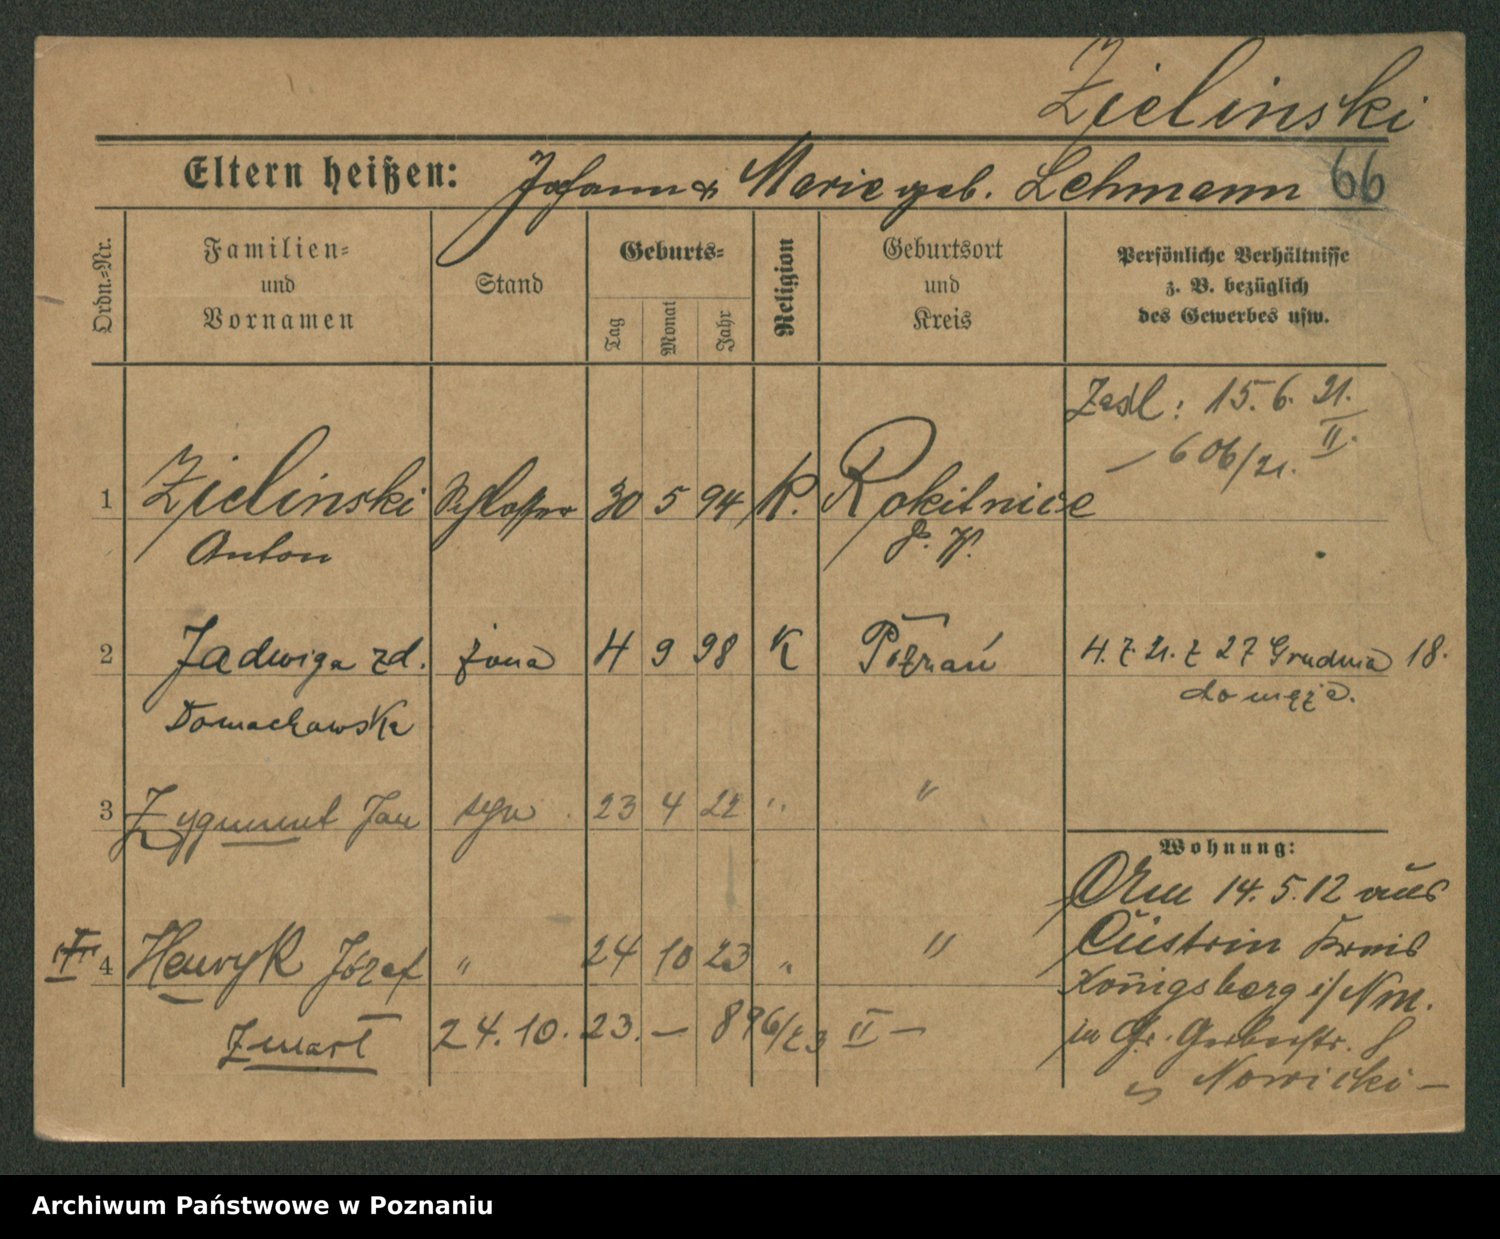 Zielinski
Eltern heißen: Johann & Marie geb. Lehmann 66
Ordn.-Nr.
Familien-
und
Vornamen
Stand
Geburts-
Tag
Monat
Jahr
Religion
Geburtsort
und
Kreis
Persönliche Verhältnisse
z. B. bezüglich
des Gewerbes usw.
15. 6. 21.
II.
— 606/21.
1 Zielinski Schlosser 30 5 94 K. Rokitnice
Anton
2 Jadwiga zd. żona 4 9 98 K Poznań 4. 7. 21. z 27 Grudnia 18.
Domachowska do męża.
3 Zygmunt Jan syn 23 4 22 " "
Wohnung:
Am 14. 5. 12 aus
Cüstrin Kreis
Königsberg i/ Nm.
in Gr. Gerberstr. 8
Nowicki —
4 Henryk Józef " 24 10 23 " "
Zmarł 24. 10. 23. — 896/23 II —
Archiwum Państwowe w Poznaniu